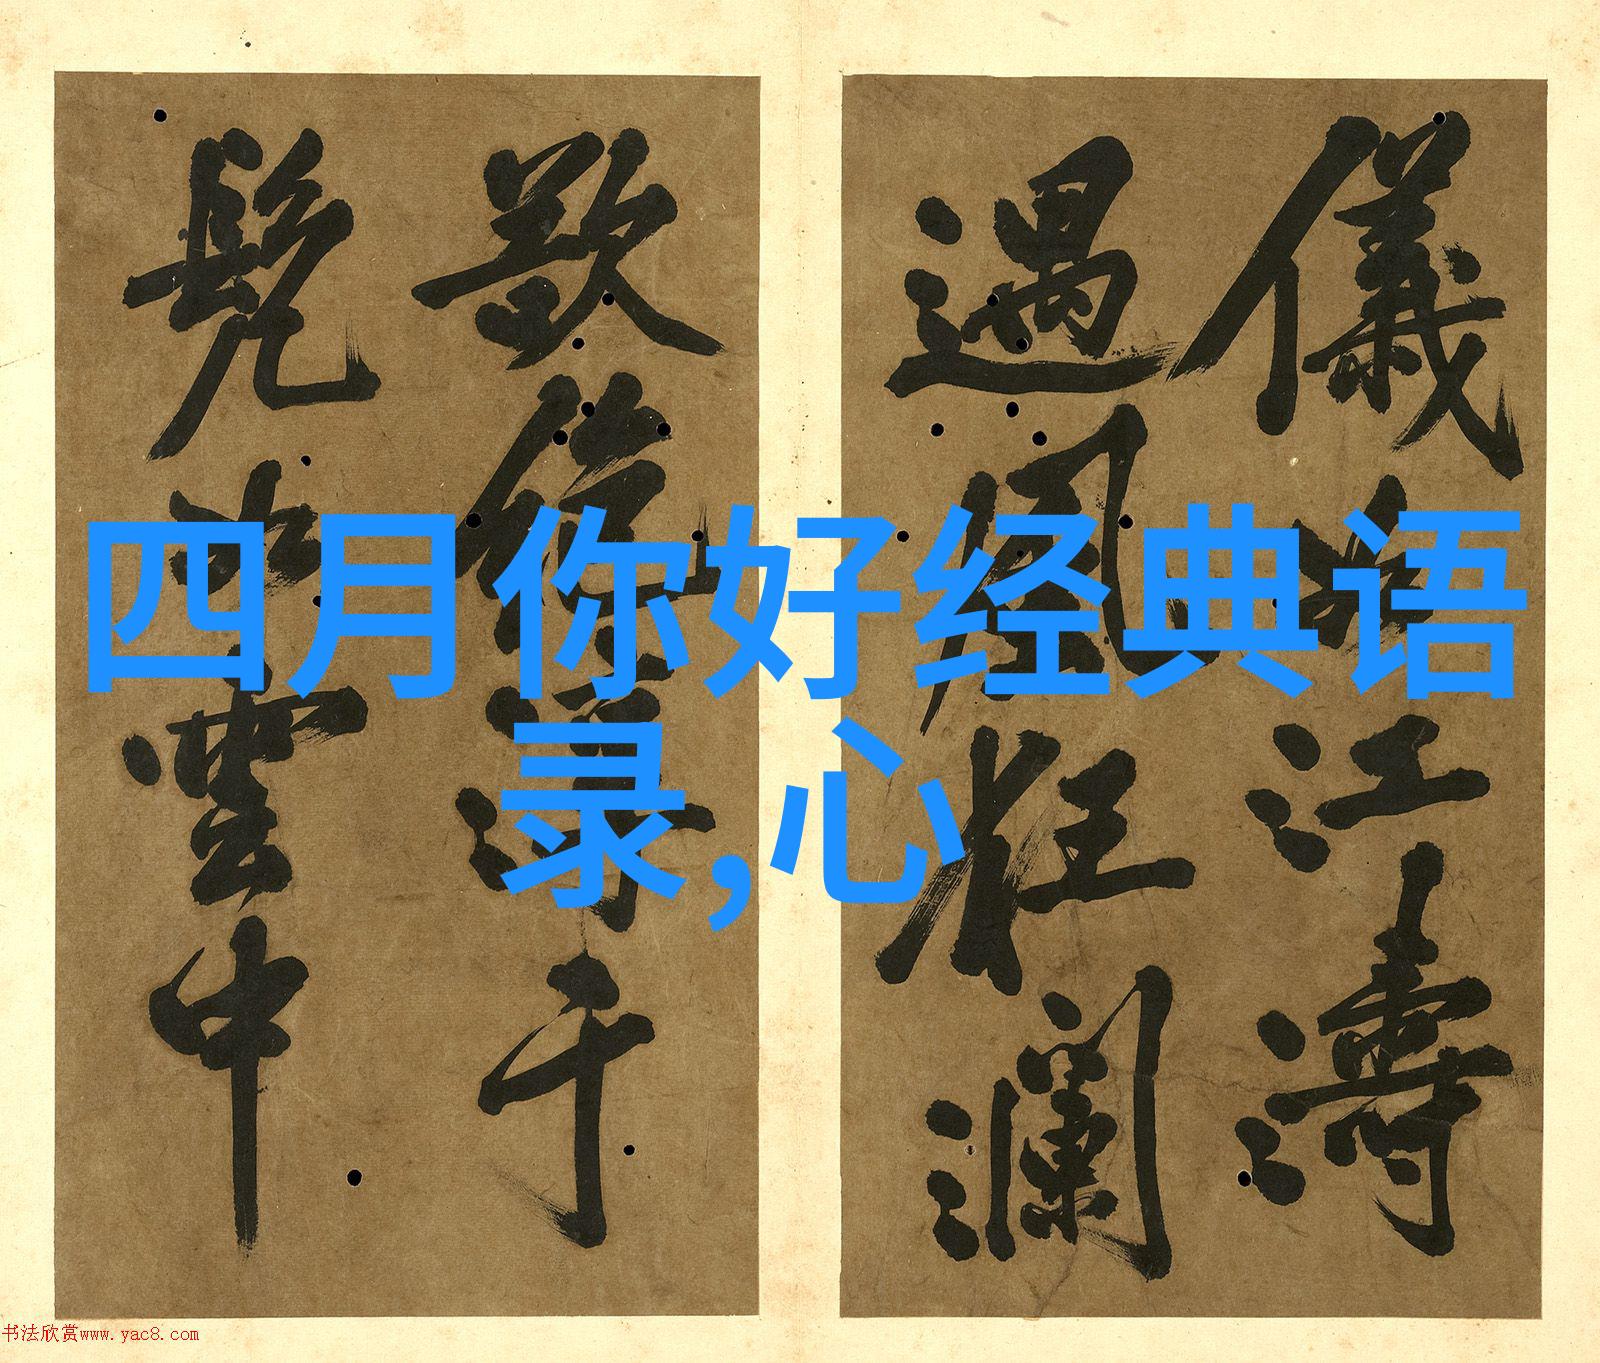 四月你好经典语
录,心
儀如江濤
遇風狂瀾
于
如雲中
书法欣赏www.yac8.com